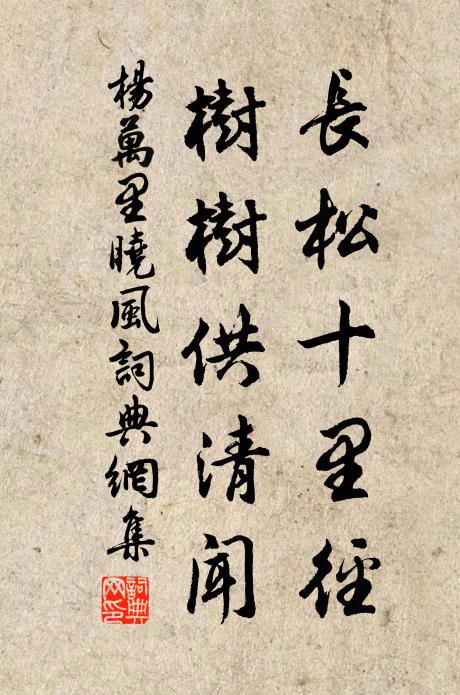 長松十里徑
樹樹供清聞
楊萬里曉風詞典網集
詞典網印